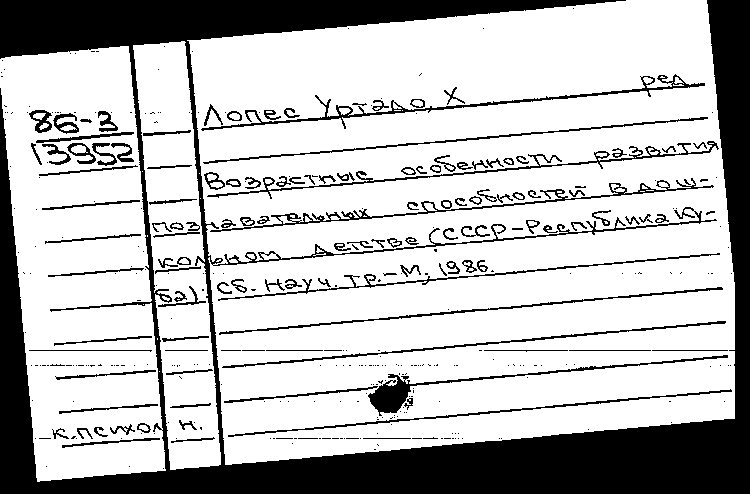 86-3
13952
Лопес Уртадо, Х ред
Возрастные особенности развития
познавательных способностей в дош-
кольном детстве (СССР-Республика Ку-
ба): Сб. науч. тр.-М., 1986.
к.психол н.